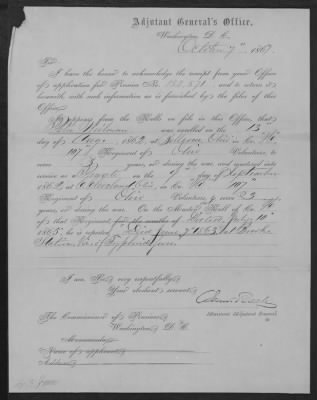 Adjutant General's Office,
Washington, D. C.
October 7th, 1867.
Sir:
I have the honor to acknowledge the receipt from your Office
of application for Pension No. and to return it
herewith with such information as is furnished by the files of this
Office.
It appears from the Rolls on file in this Office, that
was enrolled on the 13
day of Aug. 1862, at Ohio, in Co. "H"
107th Regiment of Ohio Volunteers, to
serve 3 years, or during the war, and mustered into
service as a Private on the 9th day of September
1862, at Cleveland, O., in Co. "H" 107th
Regiment of Ohio Volunteers, 23
years, or during the war. On the Muster Roll of Co. "H"
of that Regiment for the months of dated July 10th
1865, he is reported "Died June 7 1863, at Brooke
Station Va. of Typhoid fever.
I am, Sir, very respectfully,
Your obedient servant,
Assistant Adjutant General.
The Commissioner of Pensions,
Washington, D. C.
Memoranda:
Name of applicant,
Address,